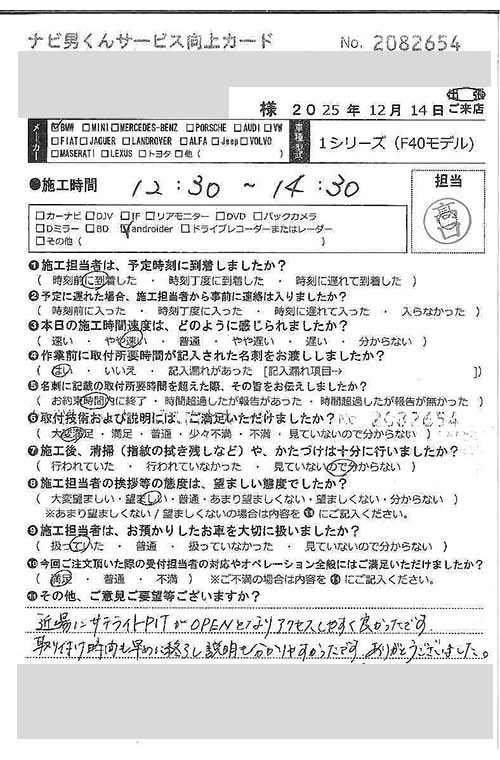 ナビ男くんサービス向上カード No. 2082654
出張
様 2025年12月14日ご来店
メーカー ☑BMW □MINI □MERCEDES-BENZ □PORSCHE □AUDI □VW
□FIAT □JAGUER □LANDROVER □ALFA □Jeep □VOLVO
□MASERATI □LEXUS □トヨタ □他（ ）
車種型式 1シリーズ（F40モデル）
●施工時間 12:30 ～ 14:30
担当
高
□カーナビ □DJV □IF □リアモニター □DVD □バックカメラ
□Dミラー □BD ☑androider □ドライブレコーダーまたはレーダー
□その他（ ）
❶施工担当者は、予定時刻に到着しましたか？
（ 時刻前に到着した ・ 時刻丁度に到着した ・ 時刻に遅れて到着した ）
❷予定に遅れた場合、施工担当者から事前に連絡は入りましたか？
（ 時刻前に入った ・ 時刻丁度に入った ・ 時刻に遅れて入った ・ 入らなかった ）
❸本日の施工時間速度は、どのように感じられましたか？
（ 速い ・ やや速い ・ 普通 ・ やや遅い ・ 遅い ・ 分からない ）
❹作業前に取付所要時間が記入された名刺をお渡ししましたか？
（ はい ・ いいえ ・ 記入漏れがあった [記入漏れ項目→ ]）
❺名刺に記載の取付所要時間を超えた際、その旨をお伝えしましたか？
（ お約束時間内に終了 ・ 時間超過したが報告があった ・ 時間超過したが報告が無かった ）
❻取付技術および説明には、ご満足いただけましたか？ No 2082654
（ 大変満足 ・ 満足 ・ 普通 ・ 少々不満 ・ 不満 ・ 見ていないので分からない ）
❼施工後、清掃（指紋の拭き残しなど）や、かたづけは十分に行いましたか？
（ 行われていた ・ 行われていなかった ・ 見ていないので分からない ）
❽施工担当者の挨拶等の態度は、望ましい態度でしたか？
（ 大変望ましい ・ 望ましい ・ 普通 ・ あまり望ましくない ・ 望ましくない ・ 分からない ）
※あまり望ましくない / 望ましくないの場合は内容を⓫にご記入ください。
❾施工担当者は、お預かりしたお車を大切に扱いましたか？
（ 扱っていた ・ 普通 ・ 扱っていなかった ・ 見ていないので分からない ）
❿今回ご注文頂いた際の受付担当者の対応やオペレーション全般にはご満足いただけましたか？
（ 満足 ・ 普通 ・ 不満 ） ※ご不満の場合は内容を⓫にご記入ください。
⓫その他、ご意見ご要望等ございますか？
近場にサテライトPITがOPENとなりアクセスしやすく良かったです。
取り付け時間も早めに終了し説明も分かりやすかったです。ありがとうございました。